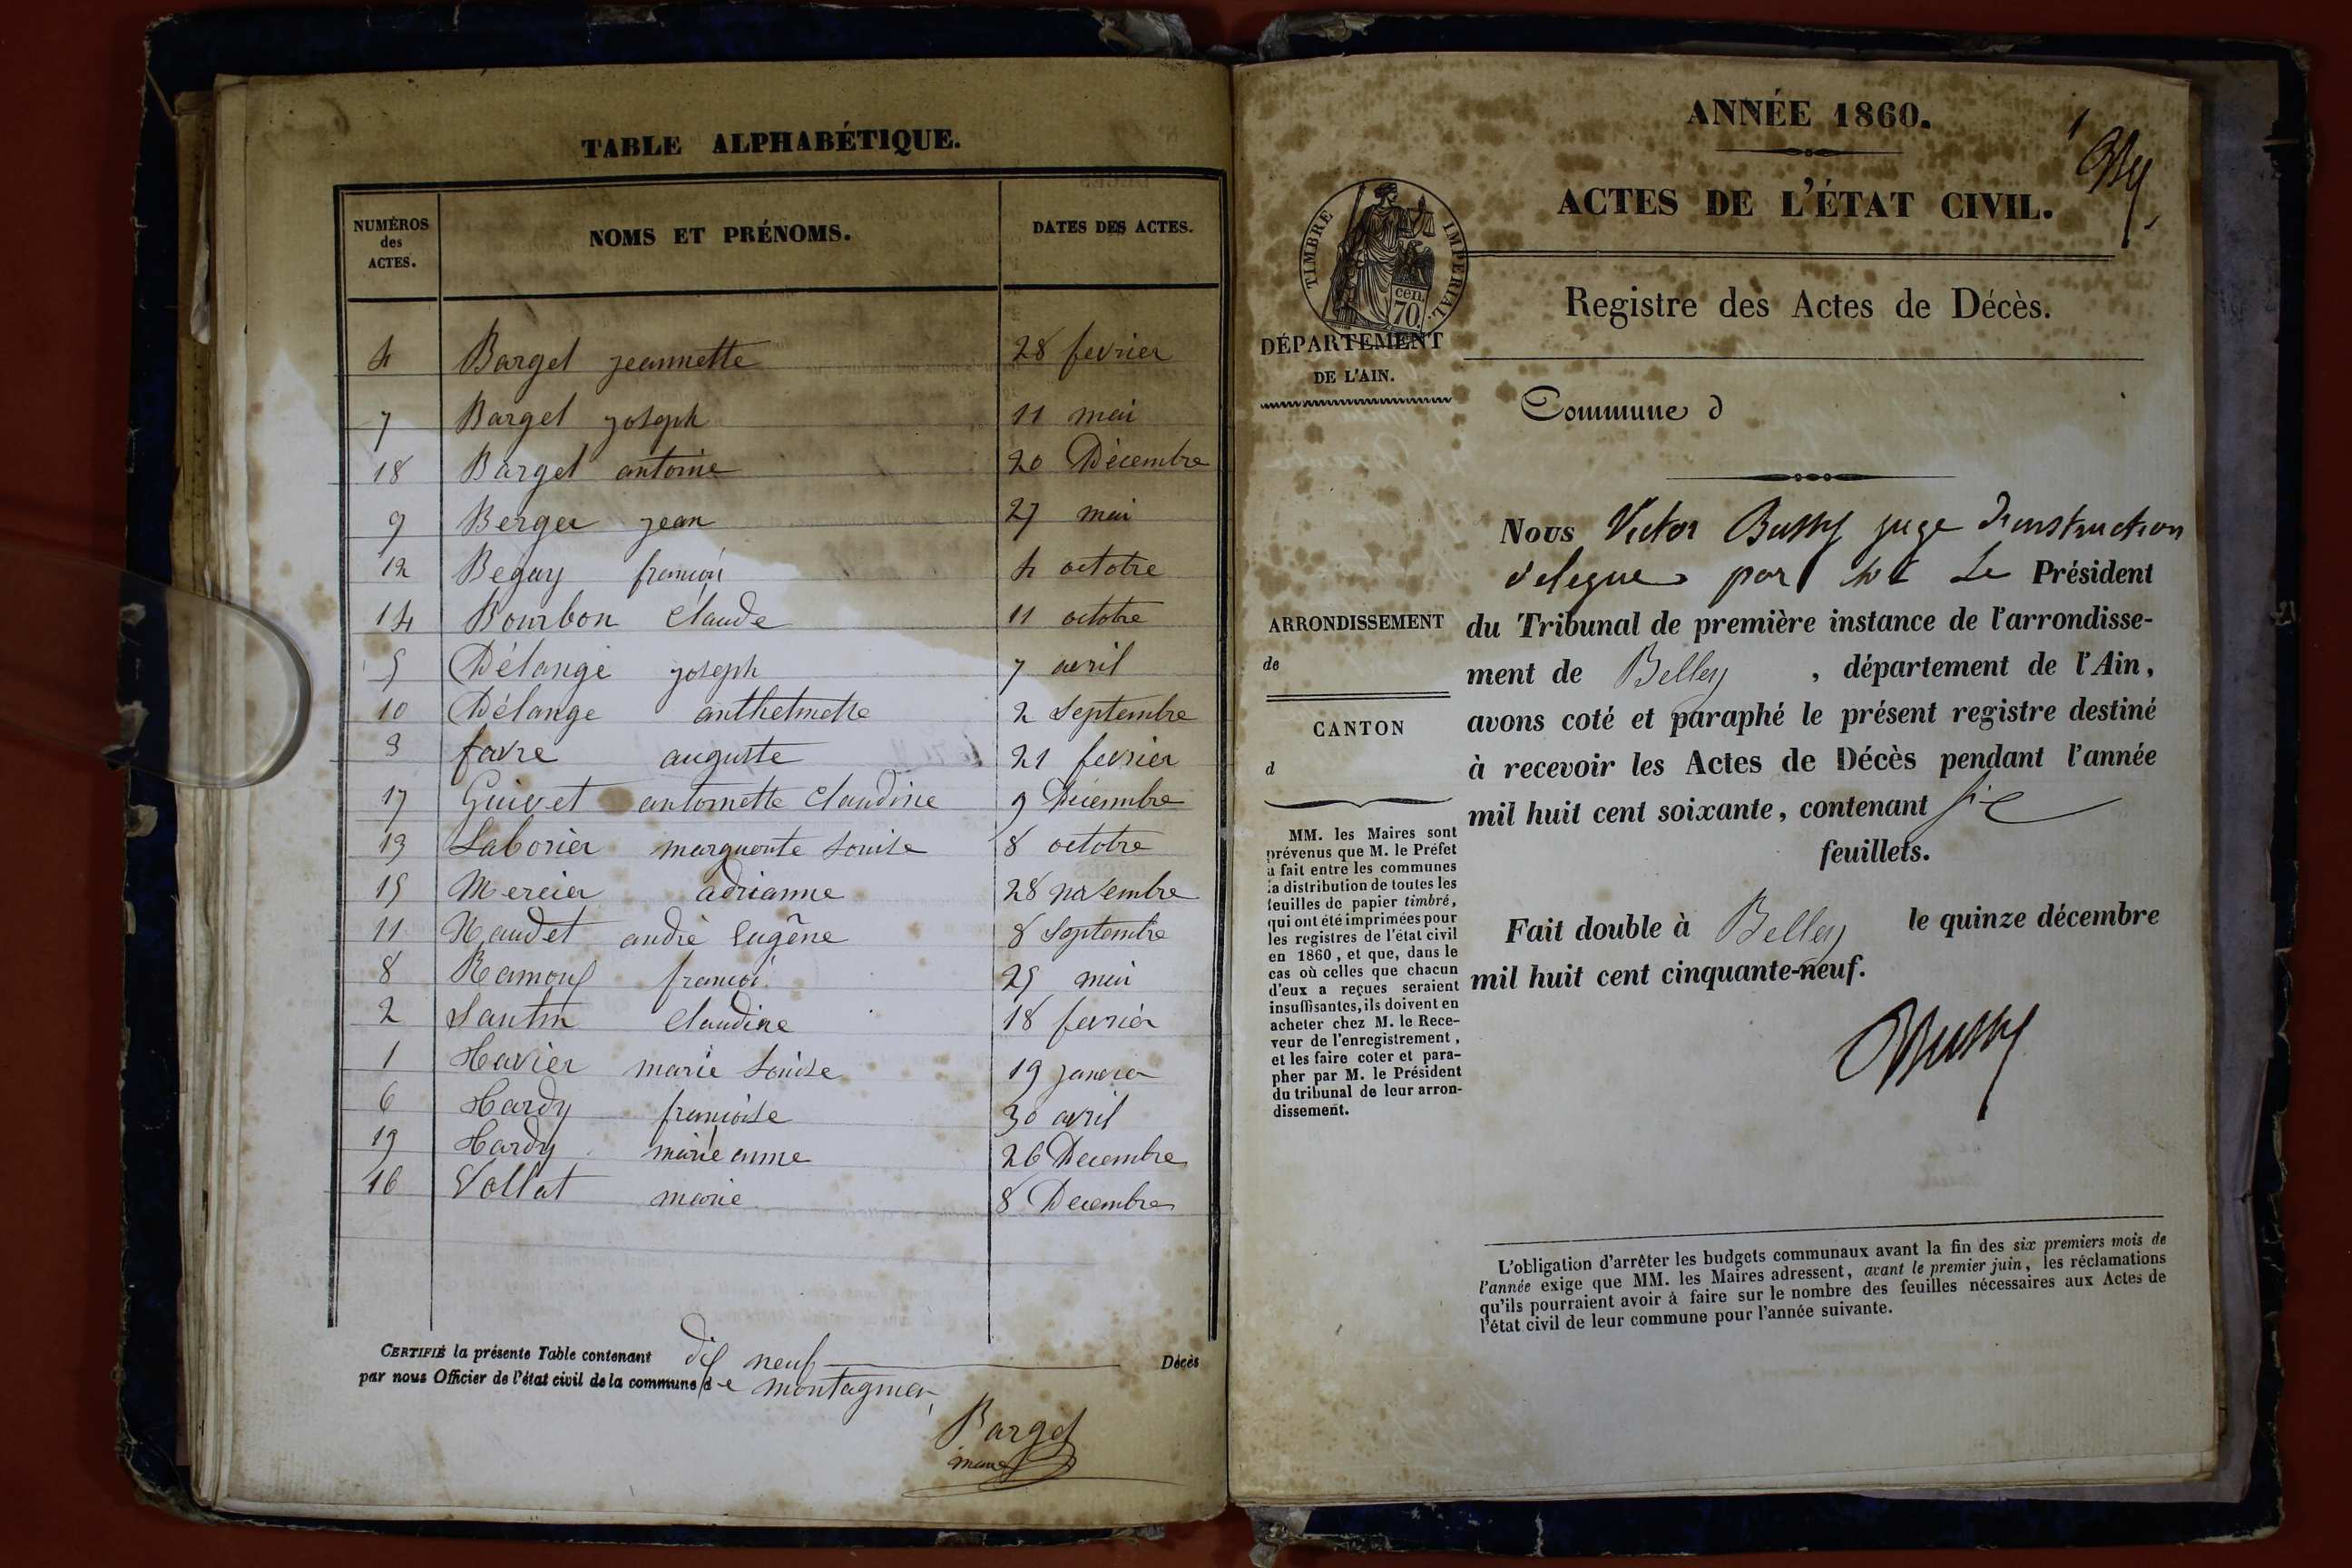 TABLE ALPHABÉTIQUE.
NUMÉROS des ACTES. NOMS ET PRÉNOMS. DATES DES ACTES.
4 Barget jeannette 28 fevrier
7 Barget joseph 11 mai
18 Barget antoine 20 Décembre
9 Berger jean 27 mai
12 Begay françois 4 octobre
14 Bourbon Claude 11 octobre
5 Délange joseph 7 avril
10 Délange anthelmette 2 Septembre
3 favre auguste 21 fevrier
17 Guivet antoinette Claudine 9 Décembre
13 Laborier marguerite Louise 8 octobre
15 Mercier adrianne 28 novembre
11 Naudet andré Eugêne 8 Septembre
8 françois 25 mai
2 Santin Claudine 18 fevrier
1 Havier marie Louise 19 janvier
6 Hardy françoise 30 avril
19 Hardy marie anne 26 Decembre
16 Vollat marie 8 Decembre
CERTIFIÉ la présente Table contenant dix neuf Décès
par nous Officier de l'état civil de la commune de montagnieu
Barget
maire
ANNÉE 1860.
1
ACTES DE L'ÉTAT CIVIL.
TIMBRE IMPERIAL.
cen. 70.
Registre des Actes de Décès.
DÉPARTEMENT
DE L'AIN.
Commune d
Nous Victor Bussy juge d'instruction
delegue par Le Président
ARRONDISSEMENT
de
du Tribunal de première instance de l'arrondisse-
ment de Belley, département de l'Ain,
CANTON
d
avons coté et paraphé le présent registre destiné
à recevoir les Actes de Décès pendant l'année
mil huit cent soixante, contenant six
feuillets.
MM. les Maires sont
prévenus que M. le Préfet
a fait entre les communes
la distribution de toutes les
feuilles de papier timbré,
qui ont été imprimées pour
les registres de l'état civil
en 1860, et que, dans le
cas où celles que chacun
d'eux a reçues seraient
insuffisantes, ils doivent en
acheter chez M. le Rece-
veur de l'enregistrement,
et les faire coter et para-
pher par M. le Président
du tribunal de leur arron-
dissement.
Fait double à Belley le quinze décembre
mil huit cent cinquante-neuf.
Bussy
L'obligation d'arrêter les budgets communaux avant la fin des six premiers mois de
l'année exige que MM. les Maires adressent, avant le premier juin, les réclamations
qu'ils pourraient avoir à faire sur le nombre des feuilles nécessaires aux Actes de
l'état civil de leur commune pour l'année suivante.